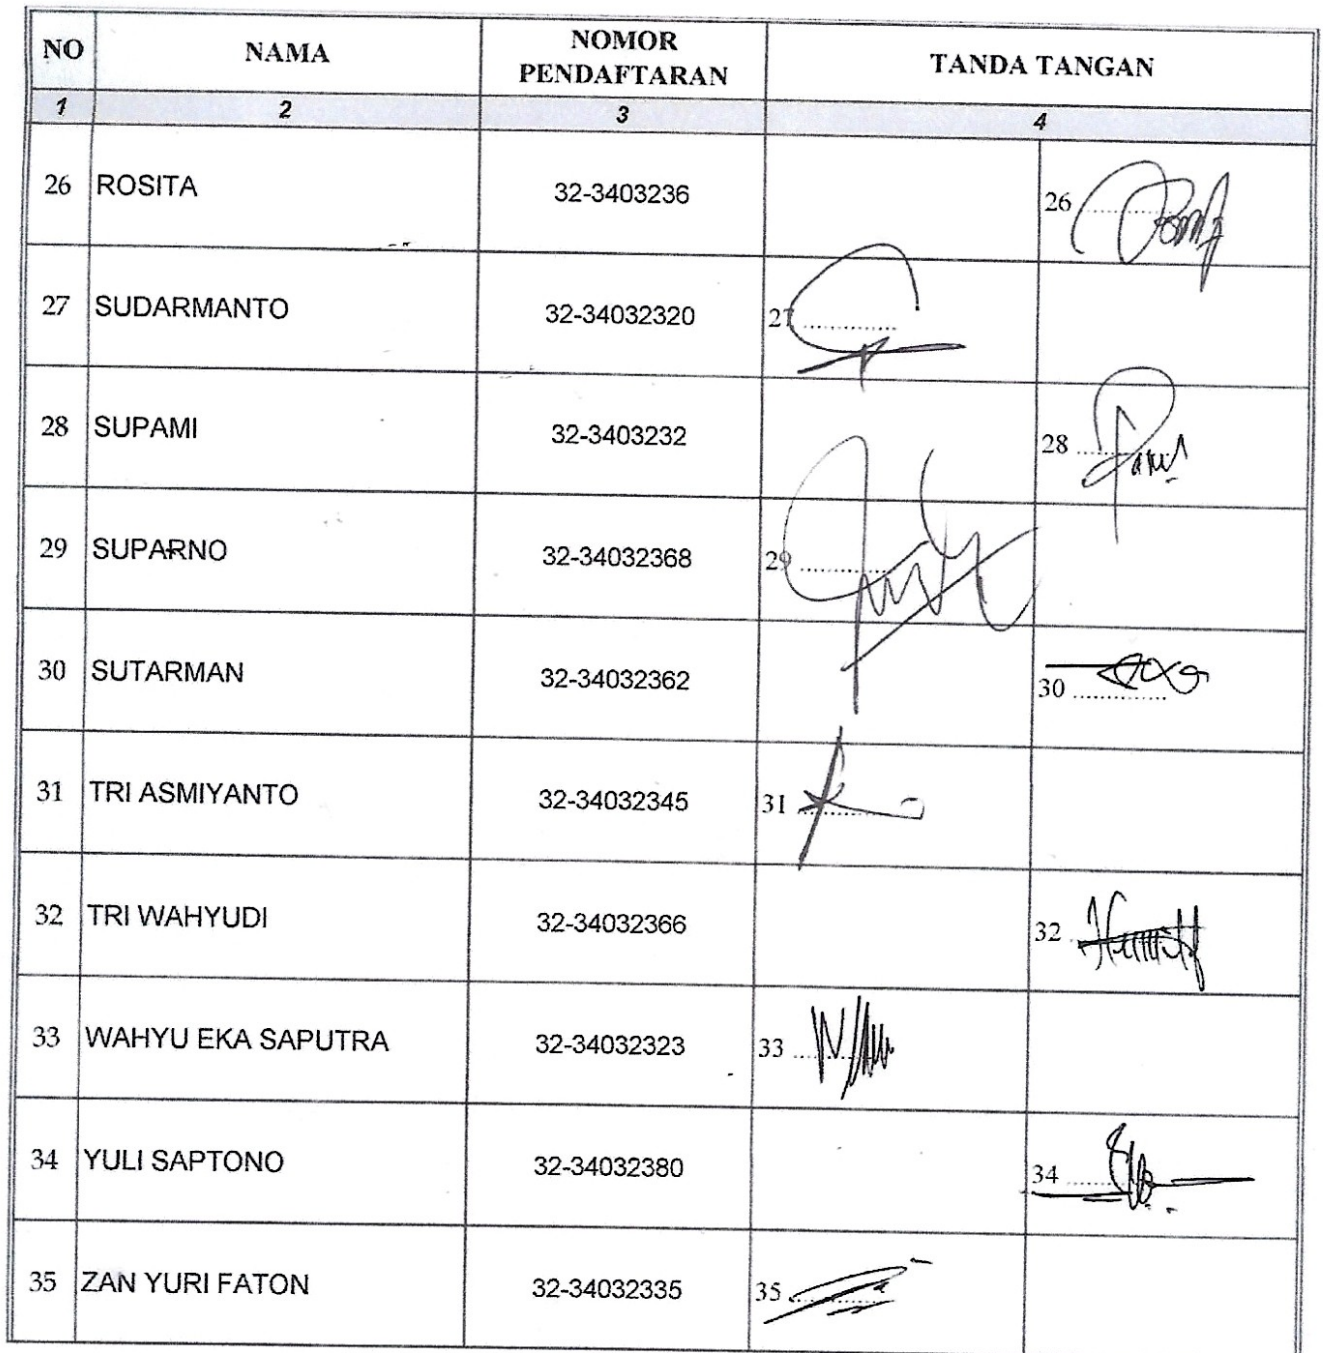 NO NAMA NOMOR PENDAFTARAN TANDA TANGAN
1 2 3 4
26 ROSITA 32-3403236 26
27 SUDARMANTO 32-34032320 27
28 SUPAMI 32-3403232 28
29 SUPARNO 32-34032368 29
30 SUTARMAN 32-34032362 30
31 TRI ASMIYANTO 32-34032345 31
32 TRI WAHYUDI 32-34032366 32
33 WAHYU EKA SAPUTRA 32-34032323 33
34 YULI SAPTONO 32-34032380 34
35 ZAN YURI FATON 32-34032335 35